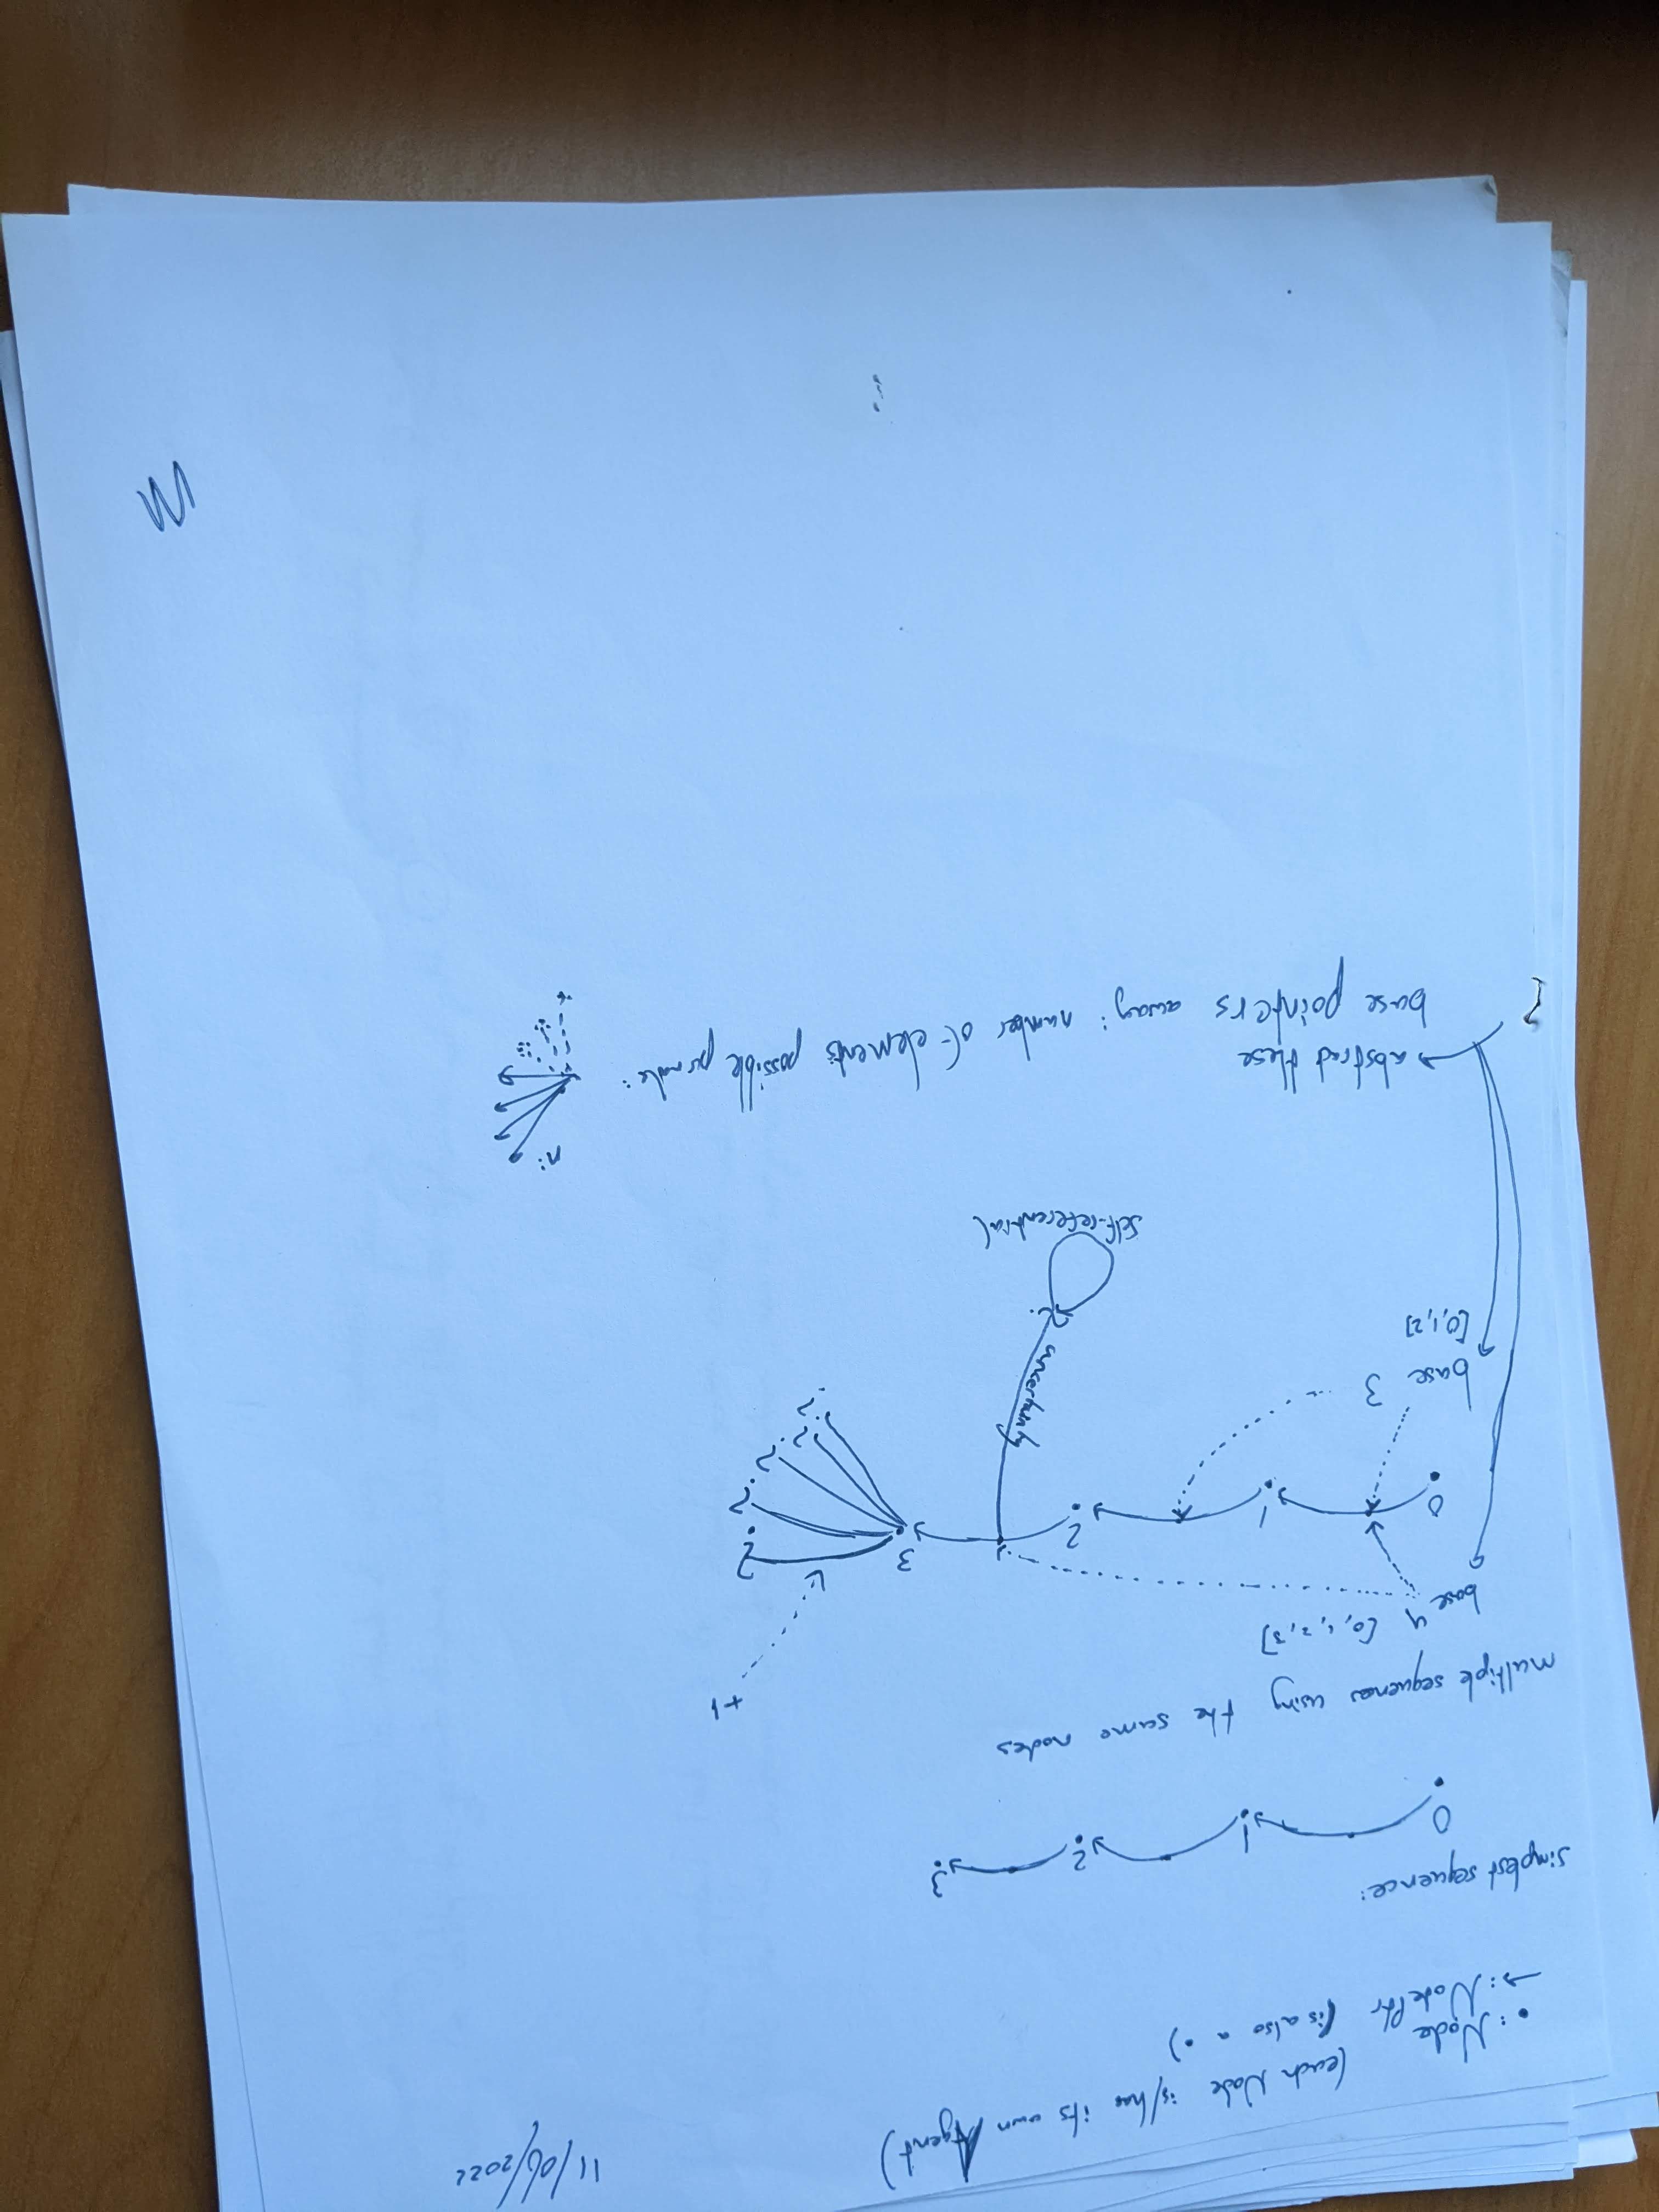 11/06/2022
•: Node (each Node is/has its own Agent)
→: NodePtr (is also a •)
simplest sequence:
0 1 2 3
multiple sequences using the same nodes
+1
base 4 [0, 1, 2, 3]
0 1 2 3 ? ? ? ? ?
base 3
[0, 1, 2]
uncertainty
?
self-referential
abstract these
base pointers away: number of elements possible per node:
n: